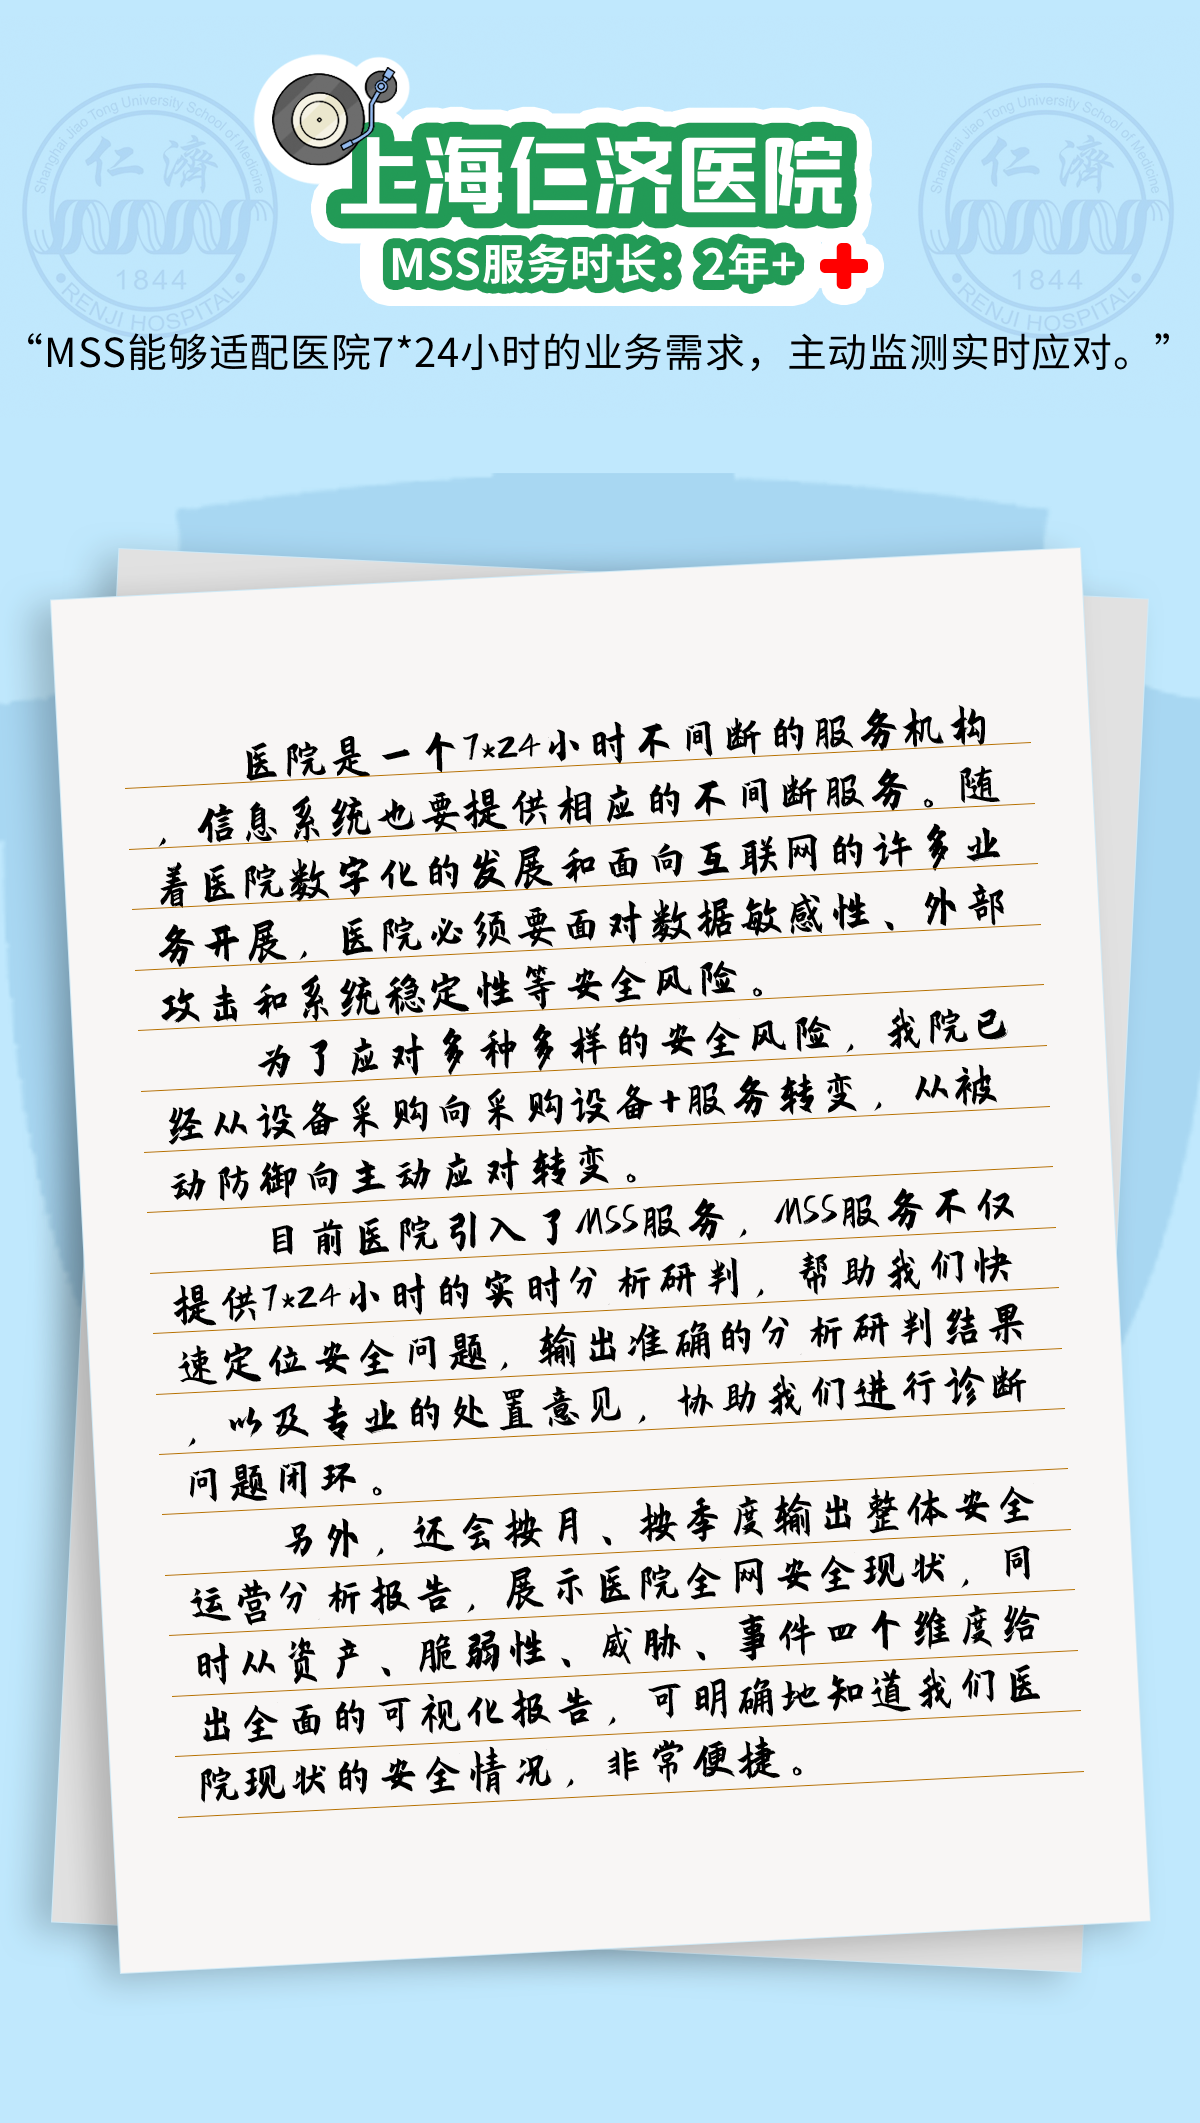 Shanghai Jiao Tong University School of Medicine
仁濟
1844
RENJI HOSPITAL
Shanghai Jiao Tong University School of Medicine
仁濟
1844
RENJI HOSPITAL
上海仁济医院
MSS服务时长：2年+
“MSS能够适配医院7*24小时的业务需求，主动监测实时应对。”
医院是一个7*24小时不间断的服务机构
，信息系统也要提供相应的不间断服务。随
着医院数字化的发展和面向互联网的许多业
务开展，医院必须要面对数据敏感性、外部
攻击和系统稳定性等安全风险。
为了应对多种多样的安全风险，我院已
经从设备采购向采购设备+服务转变，从被
动防御向主动应对转变。
目前医院引入了MSS服务，MSS服务不仅
提供7*24小时的实时分析研判，帮助我们快
速定位安全问题，输出准确的分析研判结果
，以及专业的处置意见，协助我们进行诊断
问题闭环。
另外，还会按月、按季度输出整体安全
运营分析报告，展示医院全网安全现状，同
时从资产、脆弱性、威胁、事件四个维度给
出全面的可视化报告，可明确地知道我们医
院现状的安全情况，非常便捷。